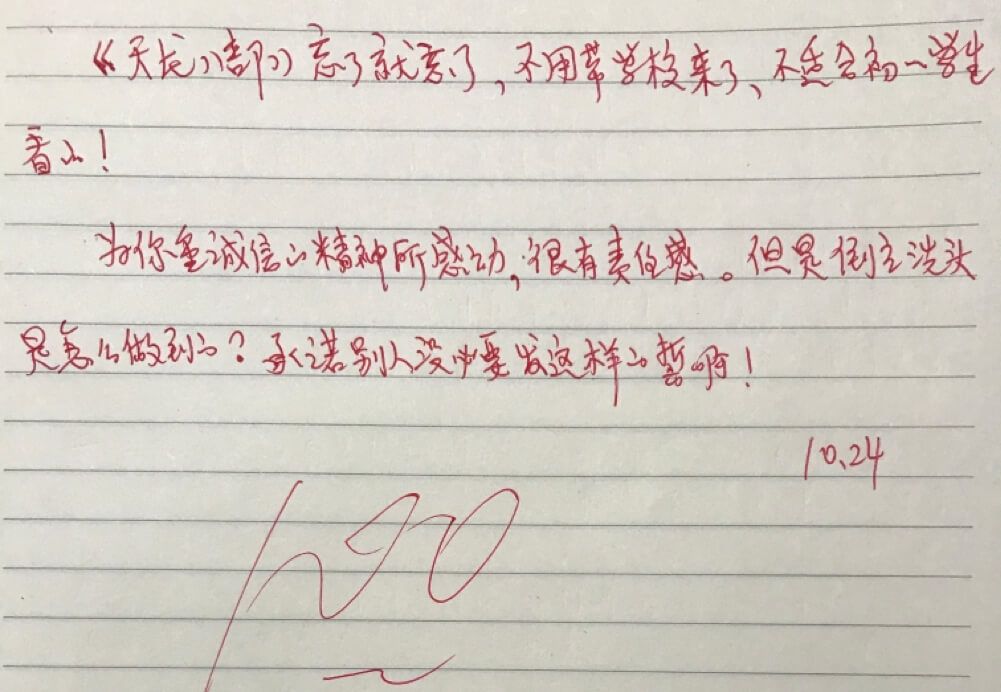 《天长八部》忘了就忘了，不用带学校来了、不适合初一学生
看的！
为你重诚信的精神所感动，很有责任感。但是倒立洗头
是怎么做到的？承诺别人没必要发这样的誓啊！
10.24
100